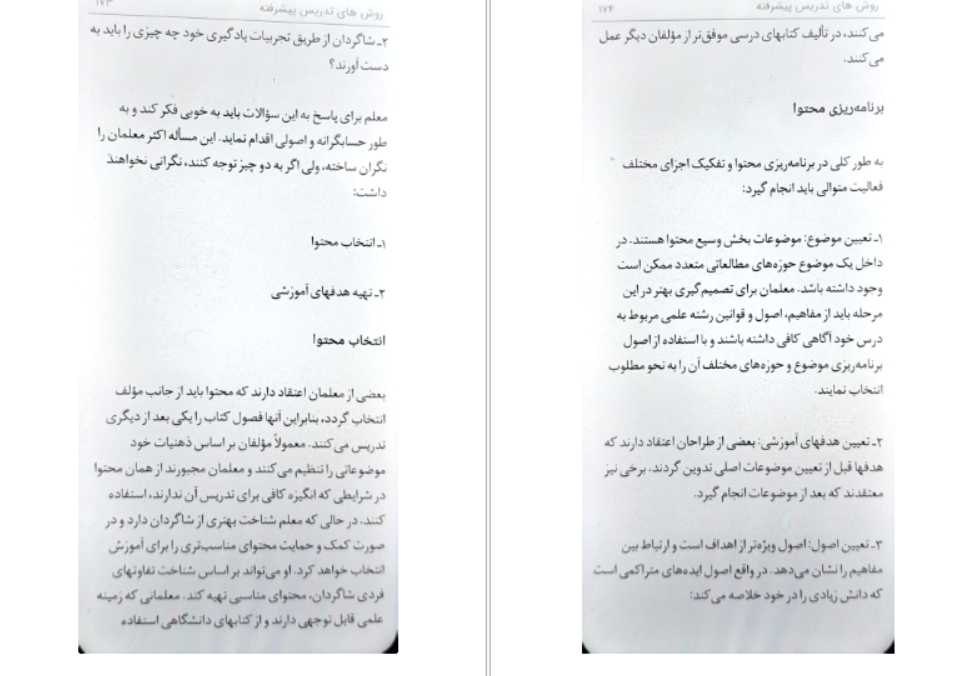 روش های تدریس پیشرفته ۱۷۳
۲ـ شاگردان از طریق تجربیات یادگیری خود چه چیزی را باید به
دست آورند؟
معلم برای پاسخ به این سؤالات باید به خوبی فکر کند و به
طور حسابگرانه و اصولی اقدام نماید. این مسأله اکثر معلمان را
نگران ساخته، ولی اگر به دو چیز توجه کنند، نگرانی نخواهند
داشت:
۱ـ انتخاب محتوا
۲ـ تهیه هدفهای آموزشی
انتخاب محتوا
بعضی از معلمان اعتقاد دارند که محتوا باید از جانب مؤلف
انتخاب گردد، بنابراین آنها فصول کتاب را یکی بعد از دیگری
تدریس می‌کنند. معمولاً مؤلفان بر اساس ذهنیات خود
موضوعاتی را تنظیم می‌کنند و معلمان مجبورند از همان محتوا
در شرایطی که انگیزه کافی برای تدریس آن ندارند، استفاده
کنند. در حالی که معلم شناخت بهتری از شاگردان دارد و در
صورت کمک و حمایت محتوای مناسب‌تری را برای آموزش
انتخاب خواهد کرد. او می‌تواند بر اساس شناخت تفاوتهای
فردی شاگردان، محتوای مناسبی تهیه کند. معلمانی که زمینه
علمی قابل توجهی دارند و از کتابهای دانشگاهی استفاده
روش های تدریس پیشرفته ۱۷۴
می‌کنند، در تألیف کتابهای درسی موفق‌تر از مؤلفان دیگر عمل
می‌کنند.
برنامه‌ریزی محتوا
به طور کلی در برنامه‌ریزی محتوا و تفکیک اجزای مختلف
فعالیت متوالی باید انجام گیرد:
۱ـ تعیین موضوع: موضوعات بخش وسیع محتوا هستند. در
داخل یک موضوع حوزه‌های مطالعاتی متعدد ممکن است
وجود داشته باشد. معلمان برای تصمیم‌گیری بهتر در این
مرحله باید از مفاهیم، اصول و قوانین رشته علمی مربوط به
درس خود آگاهی کافی داشته باشند و با استفاده از اصول
برنامه‌ریزی موضوع و حوزه‌های مختلف آن را به نحو مطلوب
انتخاب نمایند.
۲ـ تعیین هدفهای آموزشی: بعضی از طراحان اعتقاد دارند که
هدفها قبل از تعیین موضوعات اصلی تدوین گردند. برخی نیز
معتقدند که بعد از موضوعات انجام گیرد.
۳ـ تعیین اصول: اصول ویژه‌تر از اهداف است و ارتباط بین
مفاهیم را نشان می‌دهد. در واقع اصول ایده‌های متراکمی است
که دانش زیادی را در خود خلاصه می‌کند: